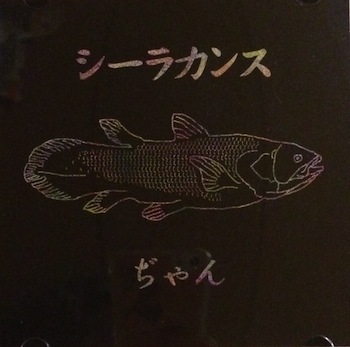 シーラカンス
ぢゃん